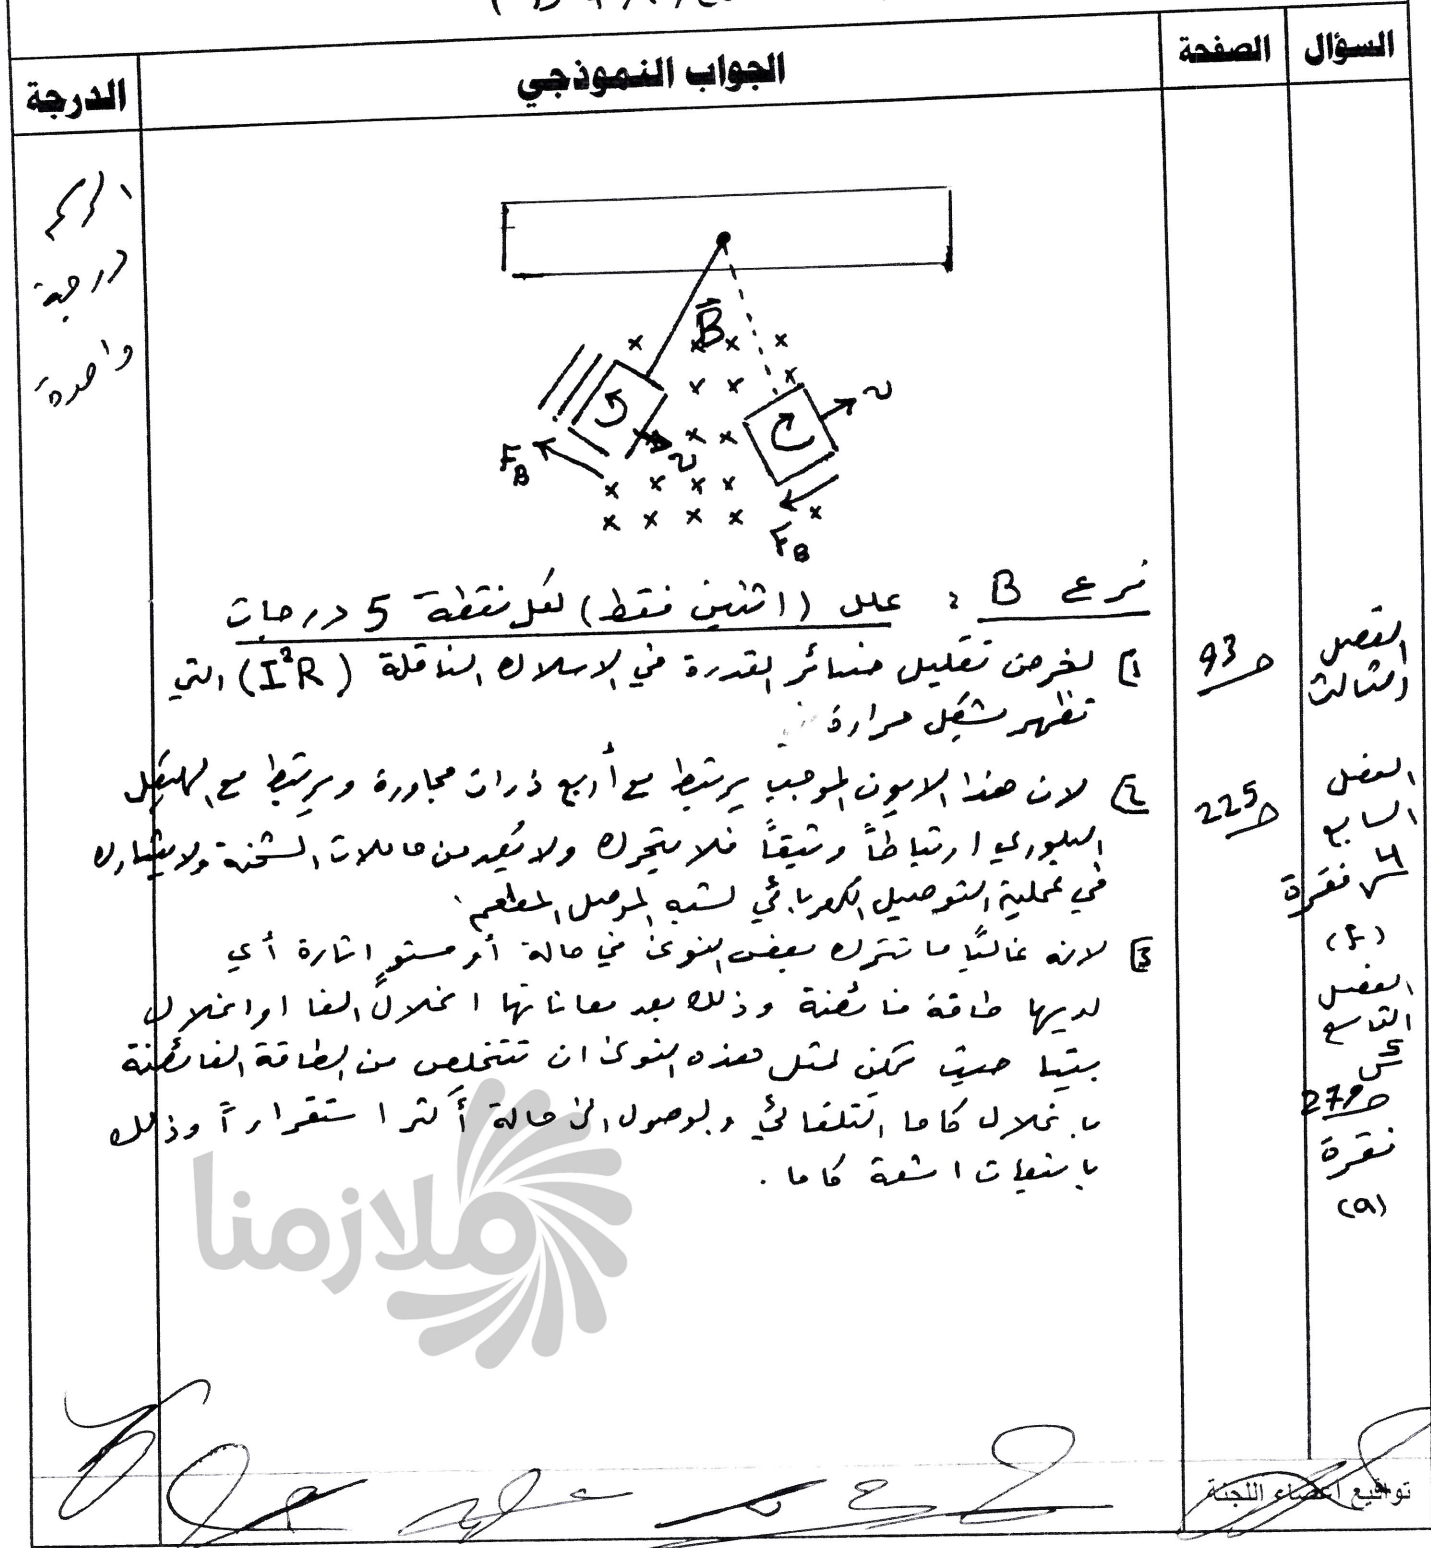 السؤال الصفحة الجواب النموذجي الدرجة
الرسم
درجة
واحدة
B
v
v
F_B
F_B
فرع B : علل (اثنين فقط) لكل نقطة 5 درجات
الفصل الثالث
ص 93
1 لغرض تقليل خسائر القدرة في الاسلاك الناقلة (I²R) التي
تظهر بشكل حرارة
الفصل السابع
فقرة (4)
ص 225
2 لان هذا الايون الموجب يرتبط مع أربع ذرات مجاورة ويرتبط مع الهيكل
البلوري ارتباطاً وثيقاً فلا يتحرك ولا يُعد من حاملات الشحنة ولا يشارك
في عملية التوصيل الكهربائي لشبه الموصل المطعم.
الفصل التاسع
ص 279
فقرة
(a)
3 لانه غالبًا ما تترك بعض النوى في حالة أو مستوٍ اثارة أي
لديها طاقة فائضنة وذلك بعد معاناتها انحلال الفا او انحلال
بيتا حيث يمكن لمثل هذه النوى ان تتخلص من الطاقة الفائضنة
بانحلال كاما التلقائي والوصول الى حالة أكثر استقراراً وذلك
بانبعاث اشعة كاما .
ملازمنا
تواقيع اعضاء اللجنة